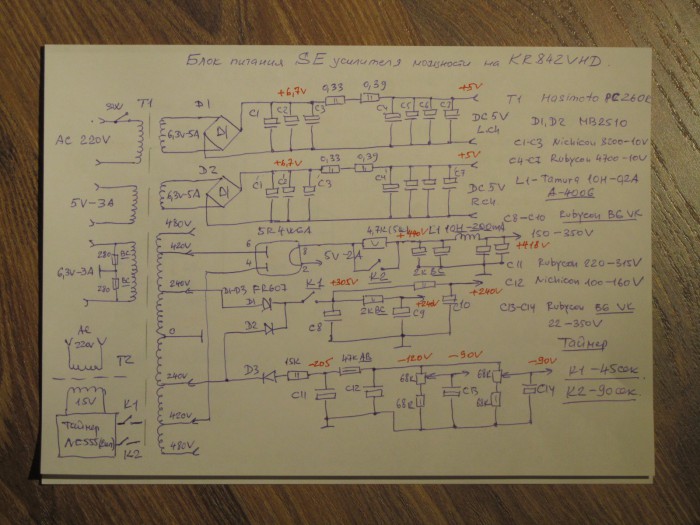 Блок питания SE усилителя мощности на KR842VHD.
SW1 T1
AC 220V
5V-3A
280 BC
6,3V-3A
280 BC
AC
220V
T2
15V
Таймер
K1
K2
D1
6,3V-5A
+6,7V
0,33 0,39
+5V
C1 C2 C3
C5 C6 C7
DC 5V
L.CH
D2
6,3V-5A
+6,7V
0,33 0,39
+5V
C1 C2 C3
C4 C7
DC 5V
R.CH
480V
420V
240V
0
240V
420V
480V
5R4WGA
6
4
8
2
5V-2A
4,7K
K2
L1 10H-200ma
+418V
D1-D3 FR607
D1
D2
K1
+305V
2K BC
+240V
C8 C9 C10
D3
15K
-205
47K AB
-120V
-90V
-90V
68K
68K
68K
C11 C12 C13 C14
T1 Hasimoto
D1, D2 MB2510
C1-C3 Nichicon
C4-C7 Rubycon 4700-10V
L1-Tamura 10H-0,2A
A-4006
C8-C10 Rubycon BG VK
150-350V
C11 Rubycon 220-315V
C12 Nichicon 100-160V
C13-C14 Rubycon BG VK
22-350V
Таймер
K1-45сек.
K2-90сек.